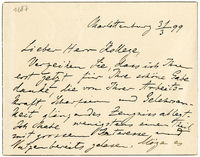 Charlottenburg 3/3 99
Lieber Herr Kollege,
Verzeihen Sie, dass ich Ihnen
erst jetzt für Ihre schöne Gabe
danke, die von Ihrer Arbeits-
kraft, und Gelehrsam-
keit glänzendes Zeugniss ablegt.
Ich habe wenigstens einen Theil
mit grossem Interesse und
Nutzen bereits gelesen. Möge es